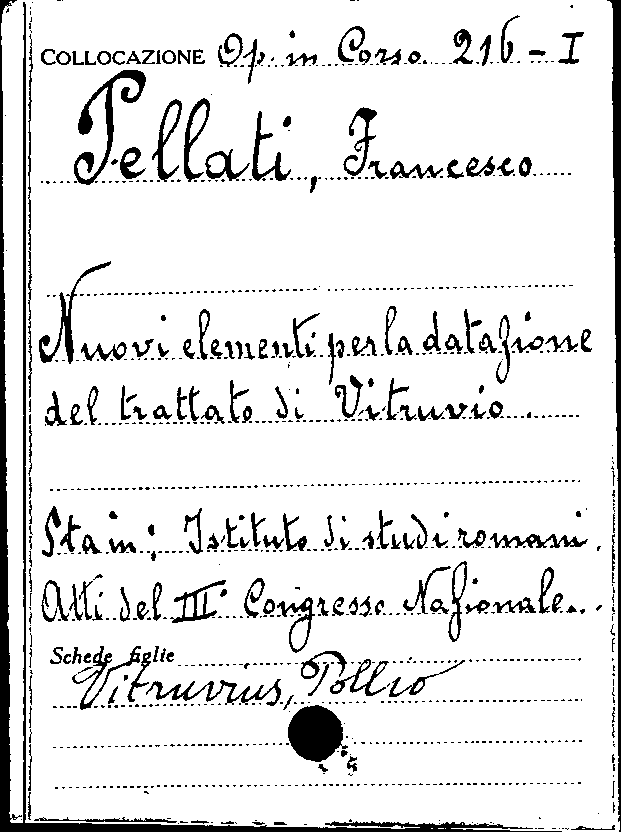 COLLOCAZIONE Op. in Corso. 216 - I
Pellati, Francesco
Nuovi elementi per la datazione
del trattato di Vitruvio.
Sta in: Istituto di studi romani.
Atti del III° Congresso Nazionale...
Schede figlie
Vitruvius, Pollio